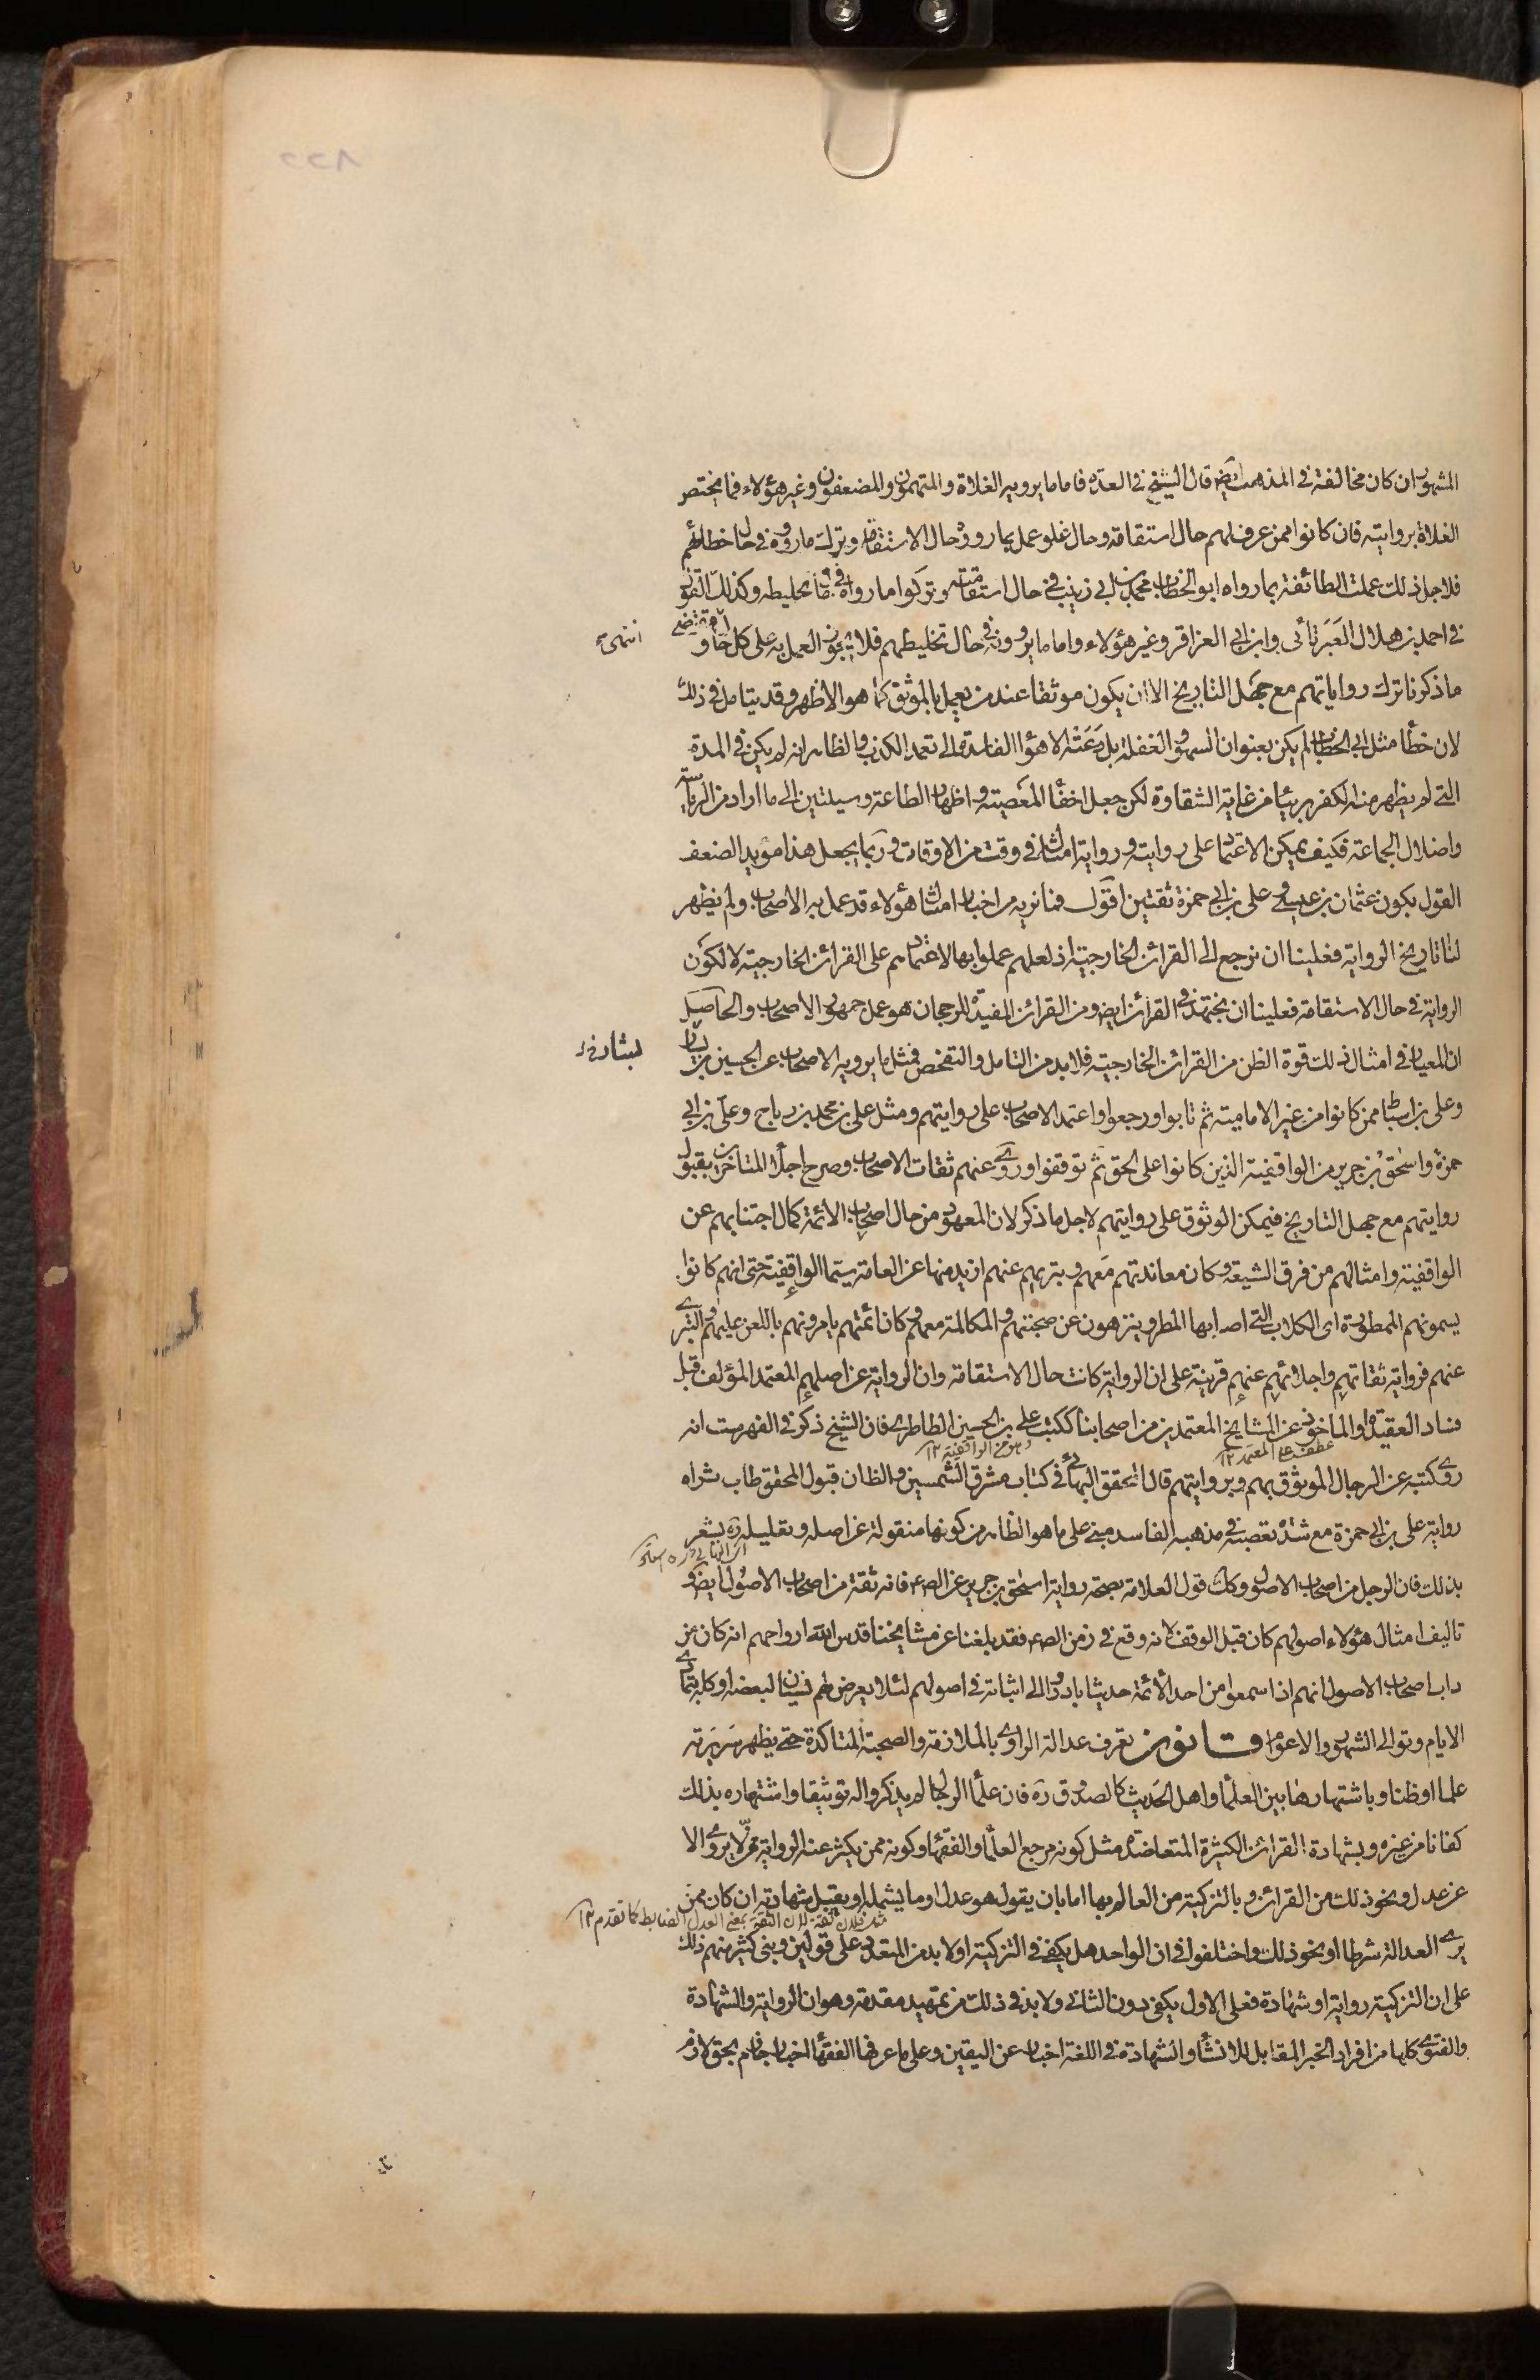 ٢٢٨
المشهور ان كان مخالفة فى المذهب ايض قال الشيخ فى العدة فاما ما يرويه الغلاة والمتهمون والمضعفون وغير هؤلاء فما يختص
الغلاة بروايته فان كانوا ممن عرف لهم حال استقامة وحال غلو عمل بما رووه حال الاستقامة وترك ما رووه فى حال خطائهم
فلاجل ذلك عملت الطائفة بما رواه ابو الخطاب محمد بن ابى زينب فى حال استقامته وتركوا ما رواه فى حال تخليطه وكذلك القول
فى احمد بن هلال العَبَرتائى وابن ابى العزاقر وغير هؤلاء واما ما يروونه فى حال تخليطهم فلا يجوز العمل به على كل حال انتهى ومقتضى
ما ذكرنا ترك رواياتهم مع جهل التاريخ الا ان يكون موثقا عند من يعمل بالموثق كما هو الاظهر وقد يتامل فى ذلك
لان خطأ مثل ابى الخطاب لم يكن بعنوان السهو والغفلة بل دعَته الاهواء الفاسدة الى تعمد الكذب والظاهر انه لم يكن فى المدة
التى لم يظهر منه الكفر بريئا من غاية الشقاوة لكن جعل اخفاء المعصيته واظهار الطاعة وسيلتين الى ما اراد من الرياسة
واضلال الجماعة فكيف يمكن الاعتماد على روايته ورواية امثاله فى وقت من الاوقات وربما يجعل هذا مؤيد الضعف
القول بكون عثمان بن عيسى وعلى بن ابى حمزة ثقتين اقول فما نريه من اخبار امثال هؤلاء قد عمل به الاصحاب ولم يظهر
لنا تاريخ الرواية فعلينا ان نرجع الى القرائن الخارجية اذ لعلهم عملوا بها لاعتمادهم على القرائن الخارجية لا لكون
الرواية فى حال الاستقامة فعلينا ان نجتهد فى القرائن ايض ومن القرائن المفيدة للرجحان هو عمل جمهور الاصحاب والحاصل
ان المعيار فى امثال ذلك قوة الظن من القرائن الخارجية فلا بد من التامل والتفحص فمثل ما يرويه الاصحاب عن الحسين بن بشار
وعلى بن اسباط ممن كانوا من غير الامامية ثم تابوا ورجعوا واعتمد الاصحاب على روايتهم ومثل على بن محمد بن رباح وعلى بن ابى
حمزة واسحق بن جرير من الواقفية الذين كانوا على الحق ثم توقفوا وروى عنهم ثقات الاصحاب وصرح اجلاء المتاخرين بقبول
روايتهم مع جهل التاريخ فيمكن الوثوق على روايتهم لاجل ما ذكر لان المعهود من حال اصحاب الائمة كمال اجتنابهم عن
الواقفية وامثالهم من فرق الشيعة وكان معاندتهم معهم وتبريهم عنهم ازيد منها عن العامة سيما الواقفية حتى انهم كانوا
يسمونهم الممطورة اى الكلاب التى اصابها المطر ويتنزهون عن صحبتهم والمكالمة معهم وكان ائمتهم يامرونهم باللعن عليهم والتبرى
عنهم فرواية ثقاتهم واجلائهم عنهم قرينة على ان الرواية كانت حال الاستقامة وان الرواية عن اصلهم المعتمد المؤلف قبل
فساد العقيدة او الماخوذ عن المشايخ المعتمدين من اصحابنا ككتب على بن الحسين الطاطرى فان الشيخ ذكر فى الفهرست انه
عطف على المعتمد ١٢
وهو من الواقفية ١٢
روى كتبه عن الرجال الموثوق بهم وبروايتهم قال المحقق البهائى فى كتاب مشرق الشمسين والظان قبول المحقق طاب ثراه
رواية على بن ابى حمزة مع شدة تعصبه فى مذهبه الفاسد مبنى على ما هو الظاهر من كونها منقولة عن اصله وتعليله ره يشعر
بذلك فان الرجل من اصحاب الاصول وكك قول العلامة بصحة رواية اسحق بن جرير عن الص٤ فانه ثقة من اصحاب الاصول ايض و
تاليف امثال هؤلاء اصولهم كان قبل الوقف لانه وقع فى زمن الص٤ فقد بلغنا عن مشايخنا قدس الله ارواحهم انه كان من
داب اصحاب الاصول انهم اذا سمعوا من احد الائمة حديثا بادروا الى اثباته فى اصولهم لئلا يعرض لهم نسيان لبعضه او كله بتمادى
الايام وتوالى الشهور والاعوام قانون تعرف عدالة الراوى بالملازمة والصحبة المتاكدة حتى يظهر سَريرته
علما او ظنا وباشتهارها بين العلماء واهل الحديث كالصدوق ره فان علماء الرجال لم يذكروا له توثيقا واشتهاره بذلك
كفانا من غيره وبشهادة القرائن الكثيرة المتعاضدة مثل كونه مرجع العلماء والفقهاء وكونه ممن يكثر عنه الرواية من لا يروى الا
عن عدل ونحو ذلك من القرائن وبالتزكية من العالم بها اما بان يقول هو عدل او ما يشمله او يقبل شهادته ان كان ممن
مثل فلان ثقة لان الثقة بمعنى العدل الضابط كما تقدم ١٢
يرى العدالة شرطا او نحو ذلك واختلفوا فى ان الواحد هل يكفى فى التزكية او لا بد من المتعدد على قولين وبنى كثير منهم ذلك
على ان التزكية رواية او شهادة فعلى الاول يكفى دون الثانى ولا بد فى ذلك من تمهيد مقدمة وهو ان الرواية والشهادة
والفتوى كلها من افراد الخبر المقابل للانشاء والشهادة فى اللغة اخبار عن اليقين وعلى ما عرفها الفقهاء اخبار جازم بحق لازم